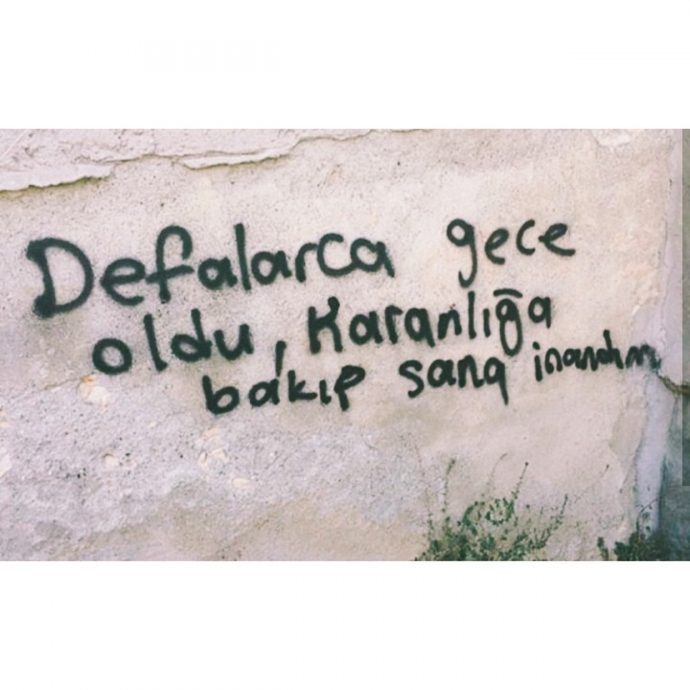 Defalarca gece
oldu, Karanlığa
bakıp sana inandım